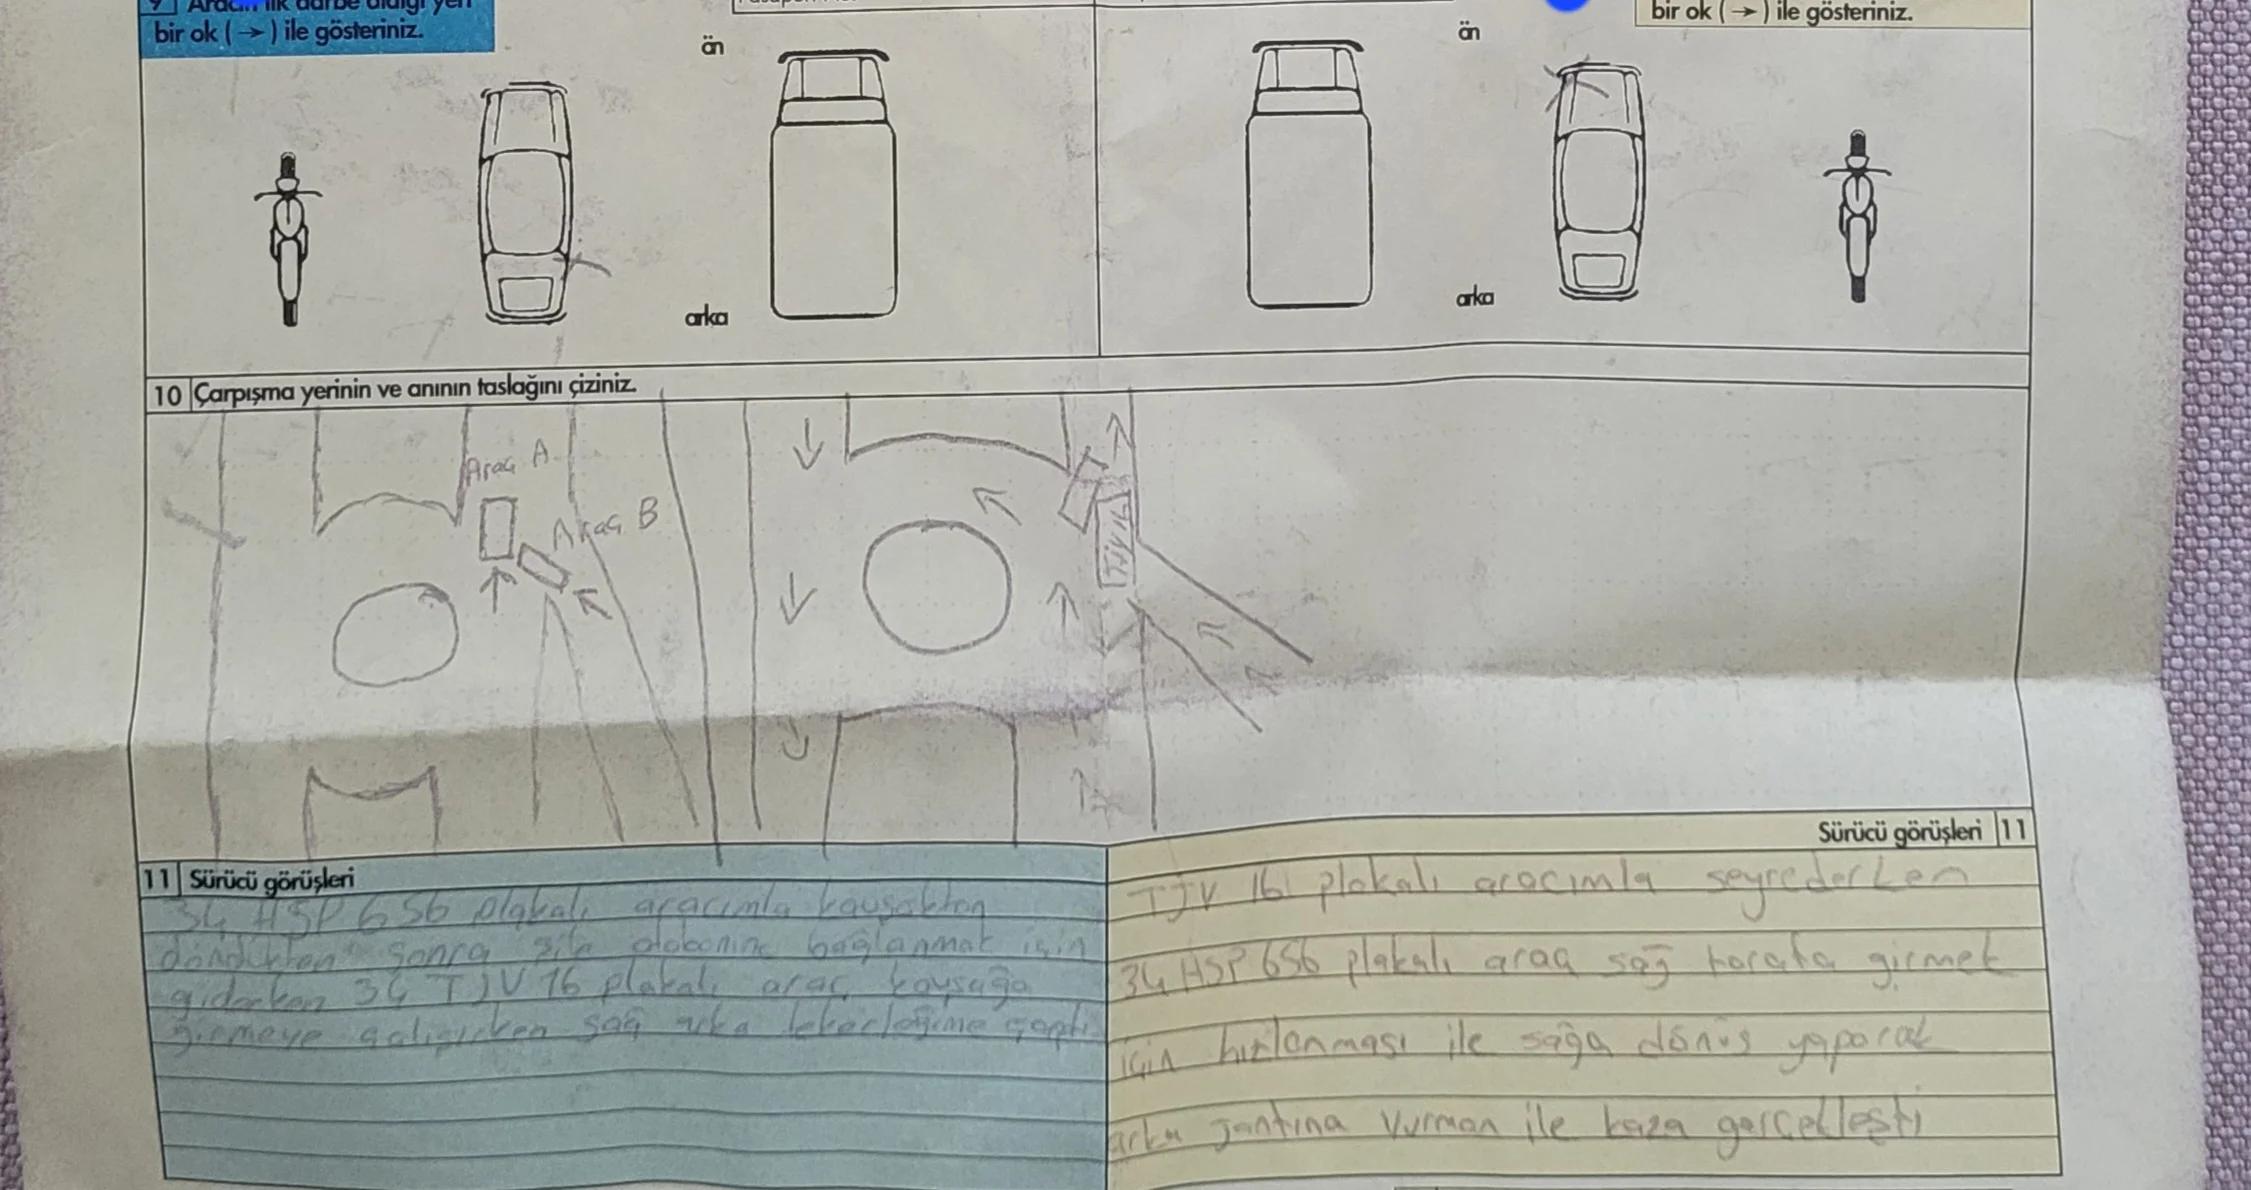 9 Aracın ilk darbe aldığı yeri
bir ok ( → ) ile gösteriniz.
bir ok ( → ) ile gösteriniz.
ön
ön
arka
arka
10 Çarpışma yerinin ve anının taslağını çiziniz.
Araç A
Araç B
TJV 16
11 Sürücü görüşleri
34 HSP 656 plakalı aracımla kavşaktan
döndükten sonra bağlanmak için
giderken 34 TJV 16 plakalı araç kavşağa
girmeye çalışırken sağ arka tekerleğime çaptı
Sürücü görüşleri 11
TJV 16 plakalı aracımla seyrederken
34 HSP 656 plakalı araç sağ girmek
için hızlanması ile sağa dönüş yaparak
arka jantına vurmam ile kaza gerçekleşti